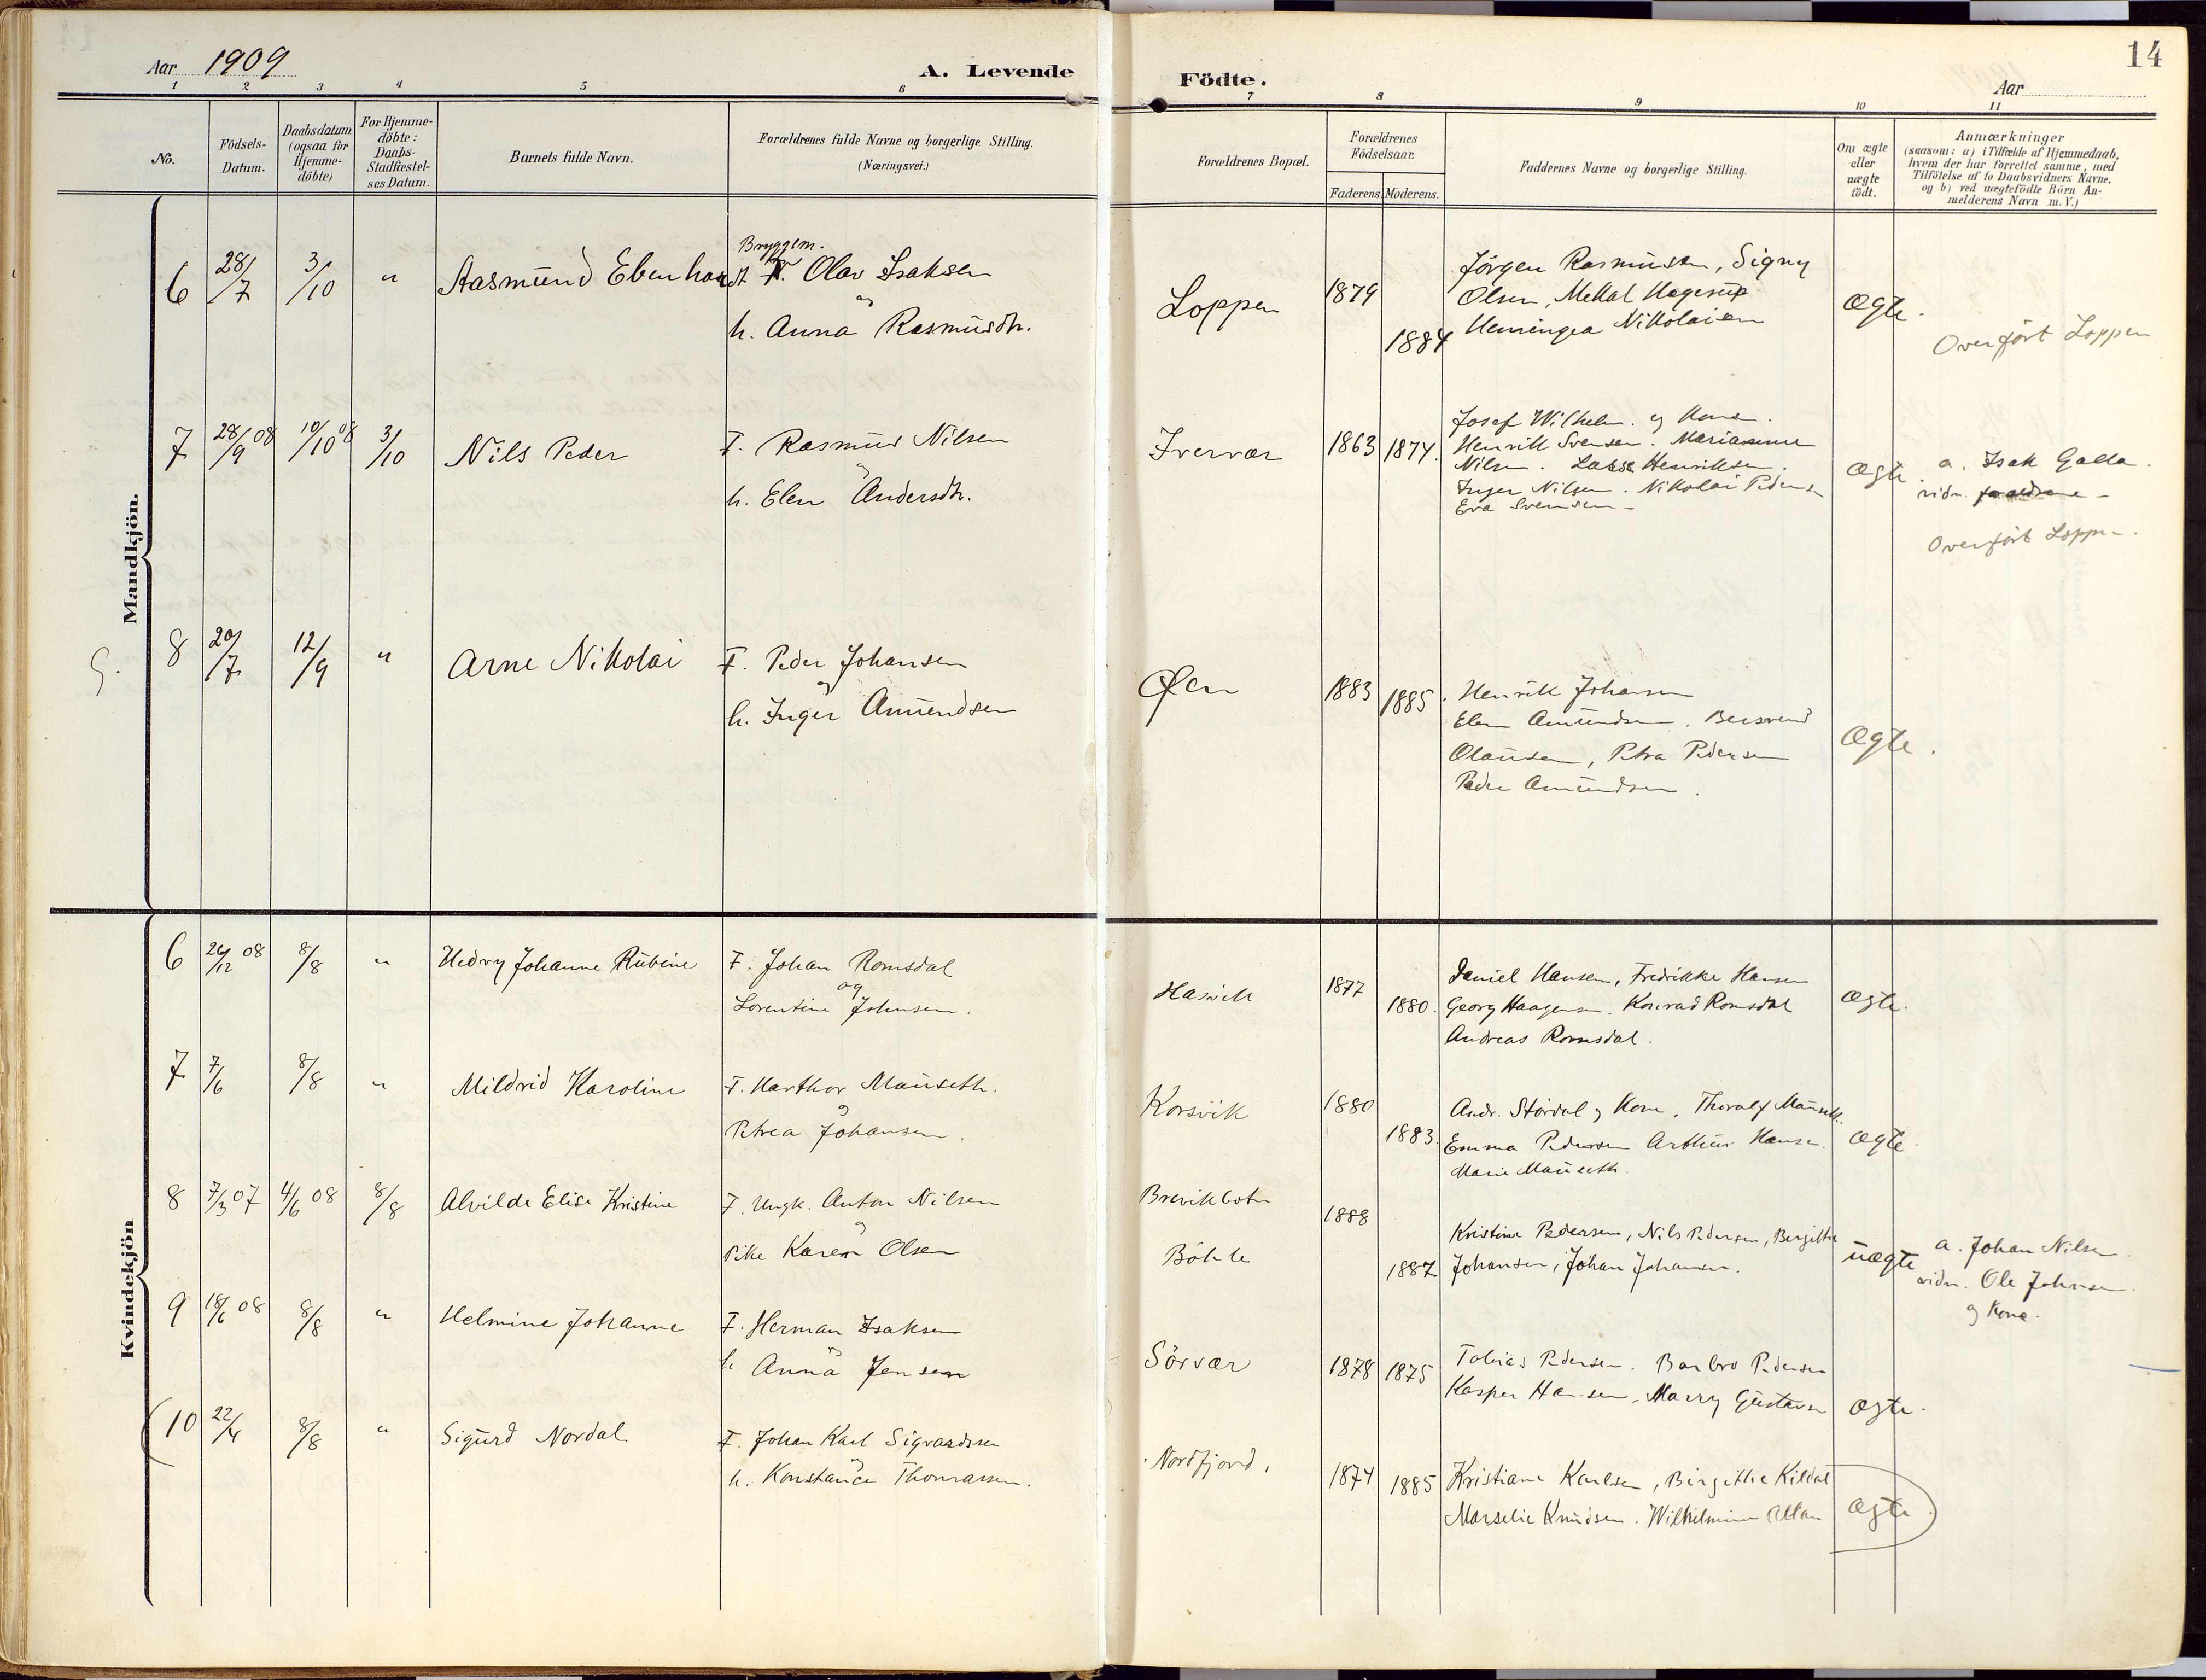 Aar 1909
A. Levende
Födte.
Aar
14
1 2 3 4 5 6 7 8 9 10 11
No.
Födsels-
Datum.
Daabsdatum
(ogsaa for
Hjemme-
döbte)
For Hjemme-
döbte:
Daabs-
Stadfæstel-
ses Datum.
Barnets fulde Navn.
Forældrenes fulde Navne og borgerlige Stilling.
(Næringsvei.)
Forældrenes Bopæl.
Forældrenes
Födselsaar.
Faderens. Moderens.
Faddernes Navne og borgerlige Stilling.
Om ægte
eller
uægte
födt.
Anmærkninger
(saasom: a) i Tilfælde af Hjemmedaab,
hvem der har forrettet samme, med
Tilföielse af to Daabsvidners Navne.
og b) ved uægtefödte Börn An-
melderens Navn m. V.)
Mandkjön.
6 28/7 3/10 " Aasmund Ebenhardt
Bryggem.
Olav Isaksen
og
h. Anna Rasmusdtr.
Loppen 1879 1884
Jörgen Rasmussen, Signy
Olsen, Mekal Hagerup
Henningea Nikolaisen
Ægte.
Overfört Loppen
7 28/9 08 10/10 08 3/10 Nils Peder
F. Rasmus Nilsen
og
h. Elen Andersdtr.
Ivervær 1863 1874.
Josef Wilhelm. og Kone.
Henrik Svensen. Marianne
Nilsen. Lasse Henriksen.
Inger Nilsen. Nikolai Pedersen
Eva Svensen
Ægte.
a. Isak Galla.
vidn. forældrene
Overfört Loppen.
G. 8 20/7 12/9 " Arne Nikolai
F. Peder Johansen
og
h. Inger Amundsen
Øen 1883 1885.
Henrik Johansen
Elen Amundsen. Bersvend
Olausen, Petra Pedersen
Peder Amundsen.
Ægte.
Kvindekjön
6 26/12 08 8/8 " Hedvy Johanne Rubine
F. Johan Romsdal
og
Lorentine Johnsen.
Hasvik 1877 1880.
Daniel Hansen, Fredrikke Hansen
Georg Haagensen. Konrad Romsdal
Andreas Romsdal.
Ægte.
7 7/6 8/8 " Mildrid Karoline
F. Harthor Mauseth.
og
Petrea Johansen.
Korsvik 1880 1883.
Andr. Stördal og Kone, Thoralf Mauseth.
Emma Pedersen Arthur Hansen.
Marie Mauseth.
Ægte
8 7/3 07 4/6 08 8/8 Alvilde Elise Kristine
F. Ungk. Anton Nilsen
og
Pike Karen Olsen
Brevikbotn
Böhle
1888 1887
Kristine Pedersen, Nils Pedersen, Bergitte
Johansen, Johan Johansen.
Uægte
a. Johan Nilsen.
vidn. Ole Johnsen.
og Kone.
9 18/6 08 8/8 " Helmine Johanne
F. Herman Isaksen
og
h. Anna Jensen
Sörvær 1878 1875
Tobias Pedersen. Barbro Pedersen
Kasper Hansen, Marry Gustavsen
Ægte.
10 22/4 8/8 " Sigurd Nordal
F. Johan Karl Sigvardssen
og
h. Konstance Thomassen.
Nordfjord. 1874 1885
Kristiane Karlsen, Birgitte Kildal
Marselie Knudsen. Wilhelmine Allan
Ægte.